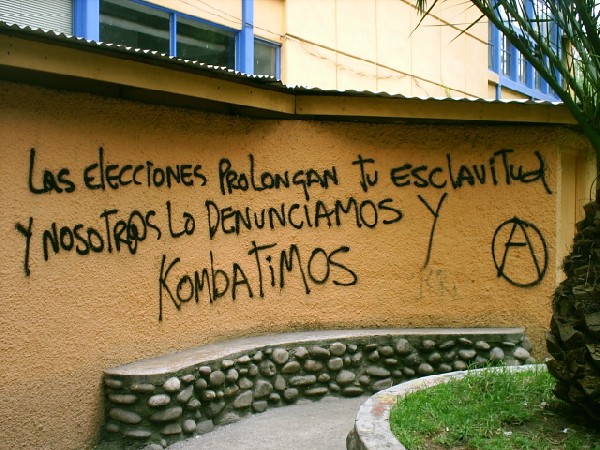 Las elecciones prolongan tu esclavitud
y nosotr@s lo denunciamos y
kombatimos